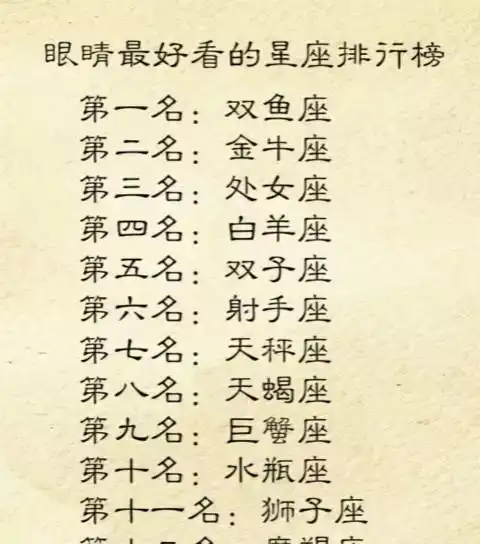 眼睛最好看的星座排行榜
第一名：双鱼座
第二名：金牛座
第三名：处女座
第四名：白羊座
第五名：双子座
第六名：射手座
第七名：天秤座
第八名：天蝎座
第九名：巨蟹座
第十名：水瓶座
第十一名：狮子座